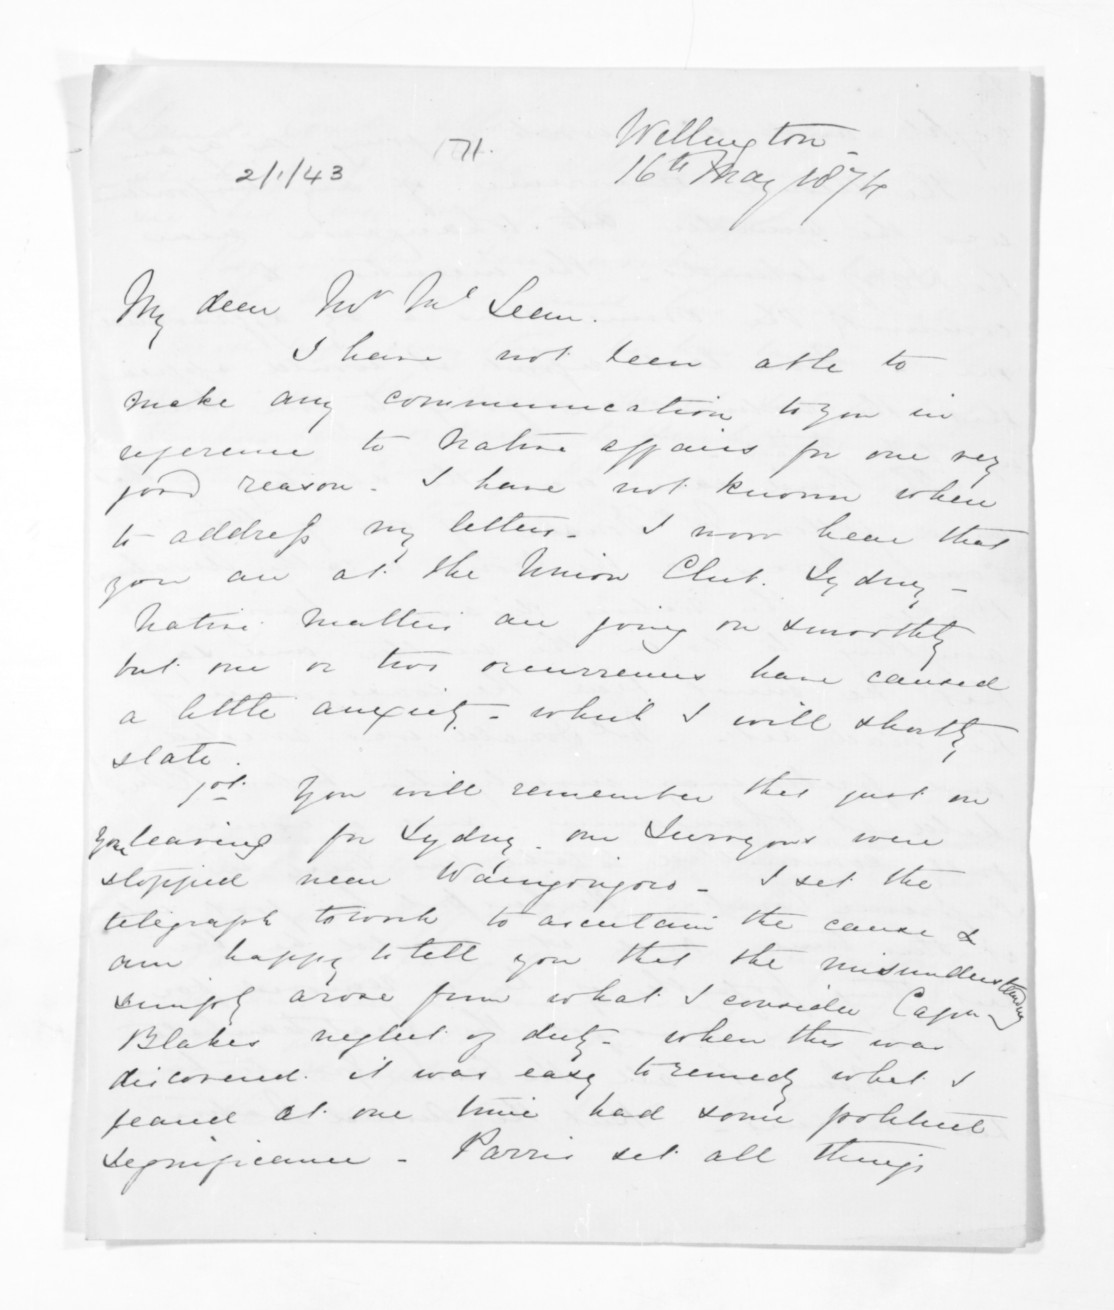 Wellington
16th May 1874
71.
2/1/43
My dear Mr McLean.
I have not been able to
make any communication to you in
reference to Native affairs for one very
good reason. I have not known where
to address my letters. I now hear that
you are at the Union Club. Sydney -
Native matters are going on smoothly
but one or two occurrences have caused
a little anxiety - which I will shortly
state.
1st You will remember that just on
you leaving for Sydney. our Surveyors were
stopped near Waingongoro - I set the
telegraph to work to ascertain the cause &
am happy to tell you that the misunderstanding
simply arose from what I consider Capn
Blakes neglect of duty - when this was
discovered. it was easy to remedy what I
feared at one time had some political
significance - Parris set all things